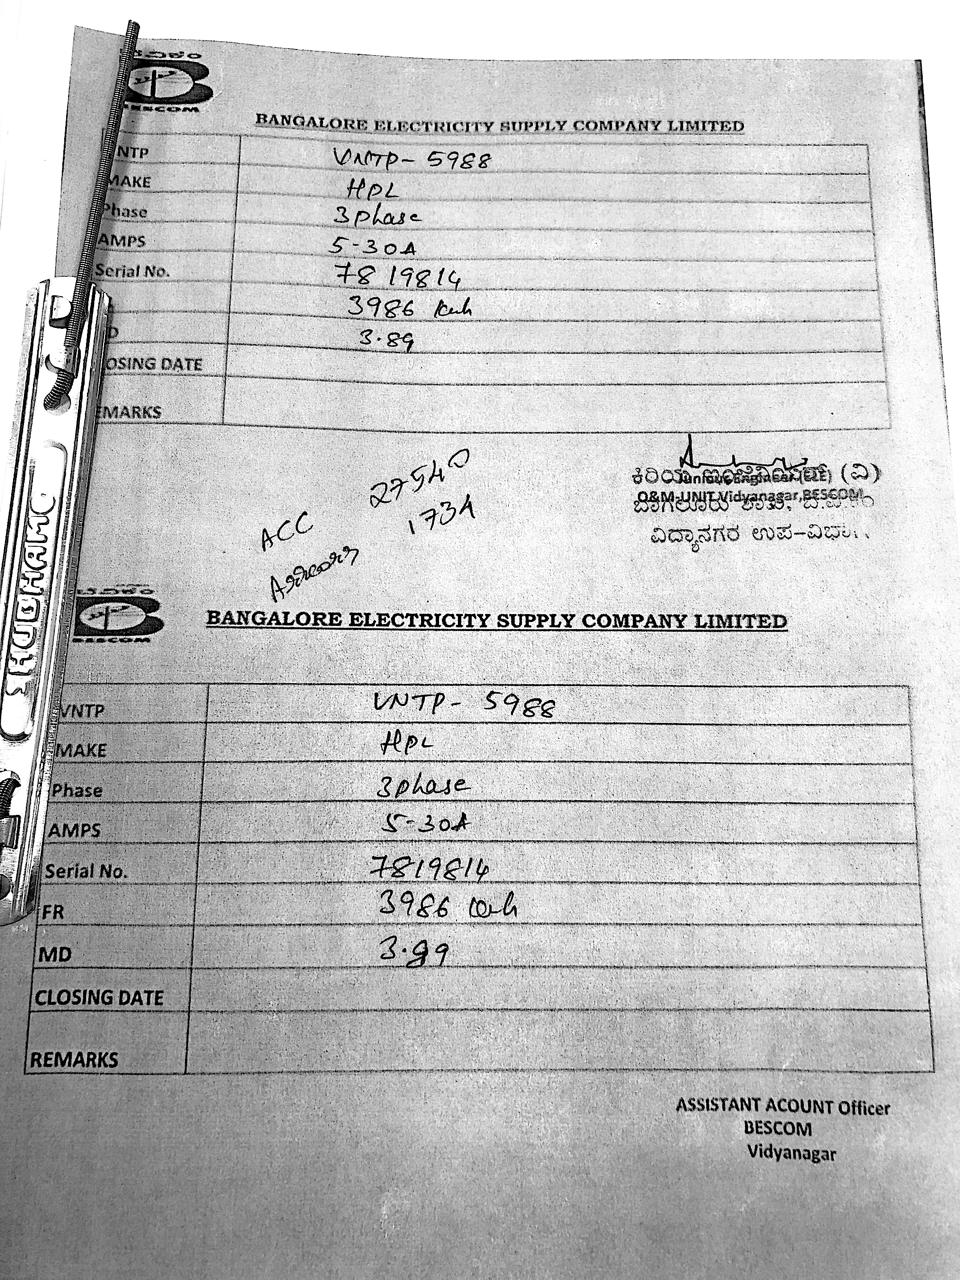 BESCOM
BANGALORE ELECTRICITY SUPPLY COMPANY LIMITED
VNTP- 5988
MAKE HPL
Phase 3phase
AMPS 5-30A
Serial No. 7819814
3986 kwh
3.89
OSING DATE
EMARKS
ACC 27540
Arrears 1734
ಕಿರಿಯ ಇಂಜಿನಿಯರ್ (ವಿ)
O&M-UNIT, Vidyanagar, BESCOM
ವಿದ್ಯಾನಗರ ಉಪ-ವಿಭಾ
SHUBHAM
BESCOM
BANGALORE ELECTRICITY SUPPLY COMPANY LIMITED
VNTP VNTP- 5988
MAKE HPL
Phase 3phase
AMPS 5-30A
Serial No. 7819814
FR 3986 kwh
MD 3.89
CLOSING DATE
REMARKS
ASSISTANT ACOUNT Officer
BESCOM
Vidyanagar